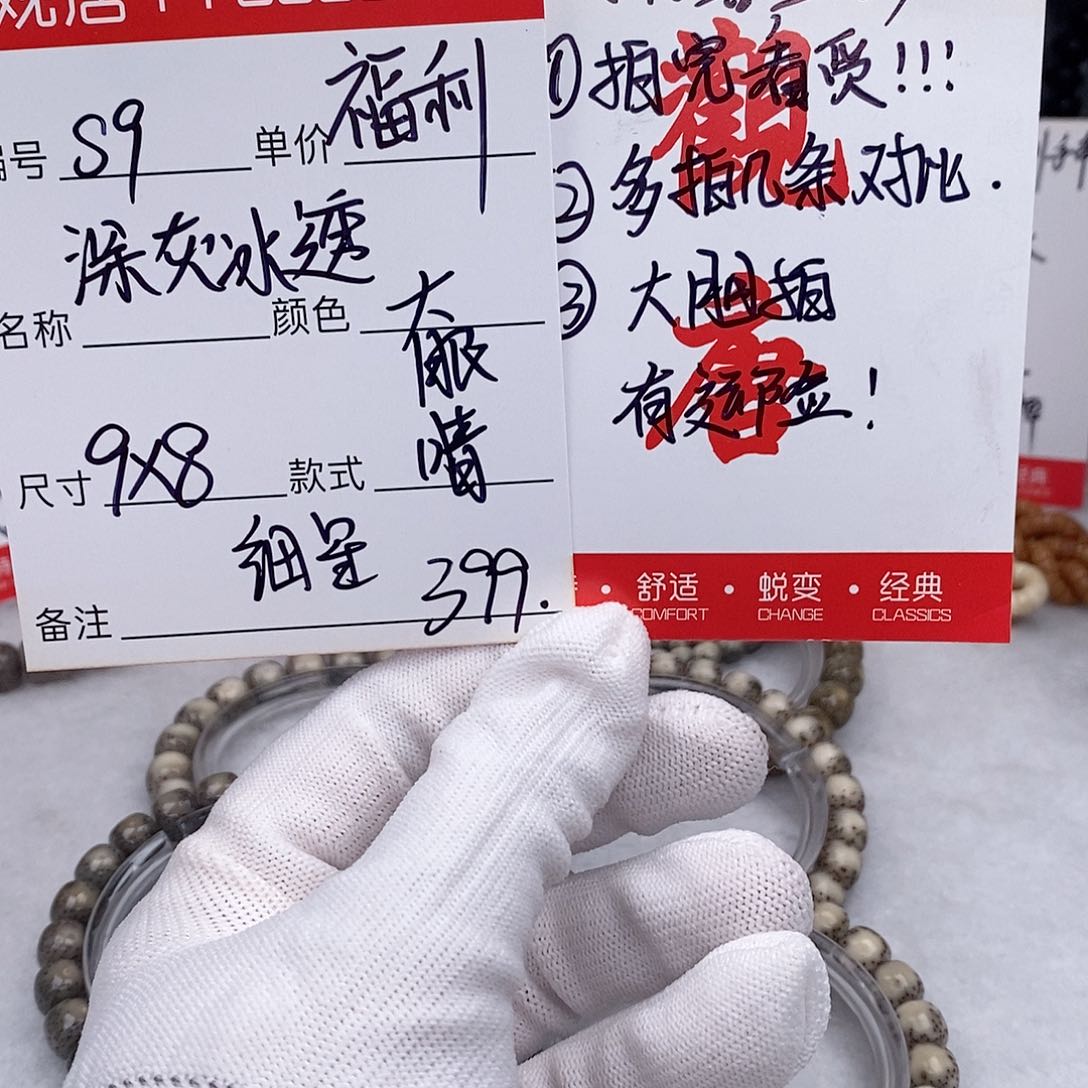 编号 S9 单价 福利
深灰冰透
名称 颜色 大眼睛
尺寸 9X8 款式
细星
备注 399.
①拍完看质!!!
②多拍几条对比.
③大胆拍
有运险!
觀唐
舒适 · 蜕变 · 经典
COMFORT CHANGE CLASSICS